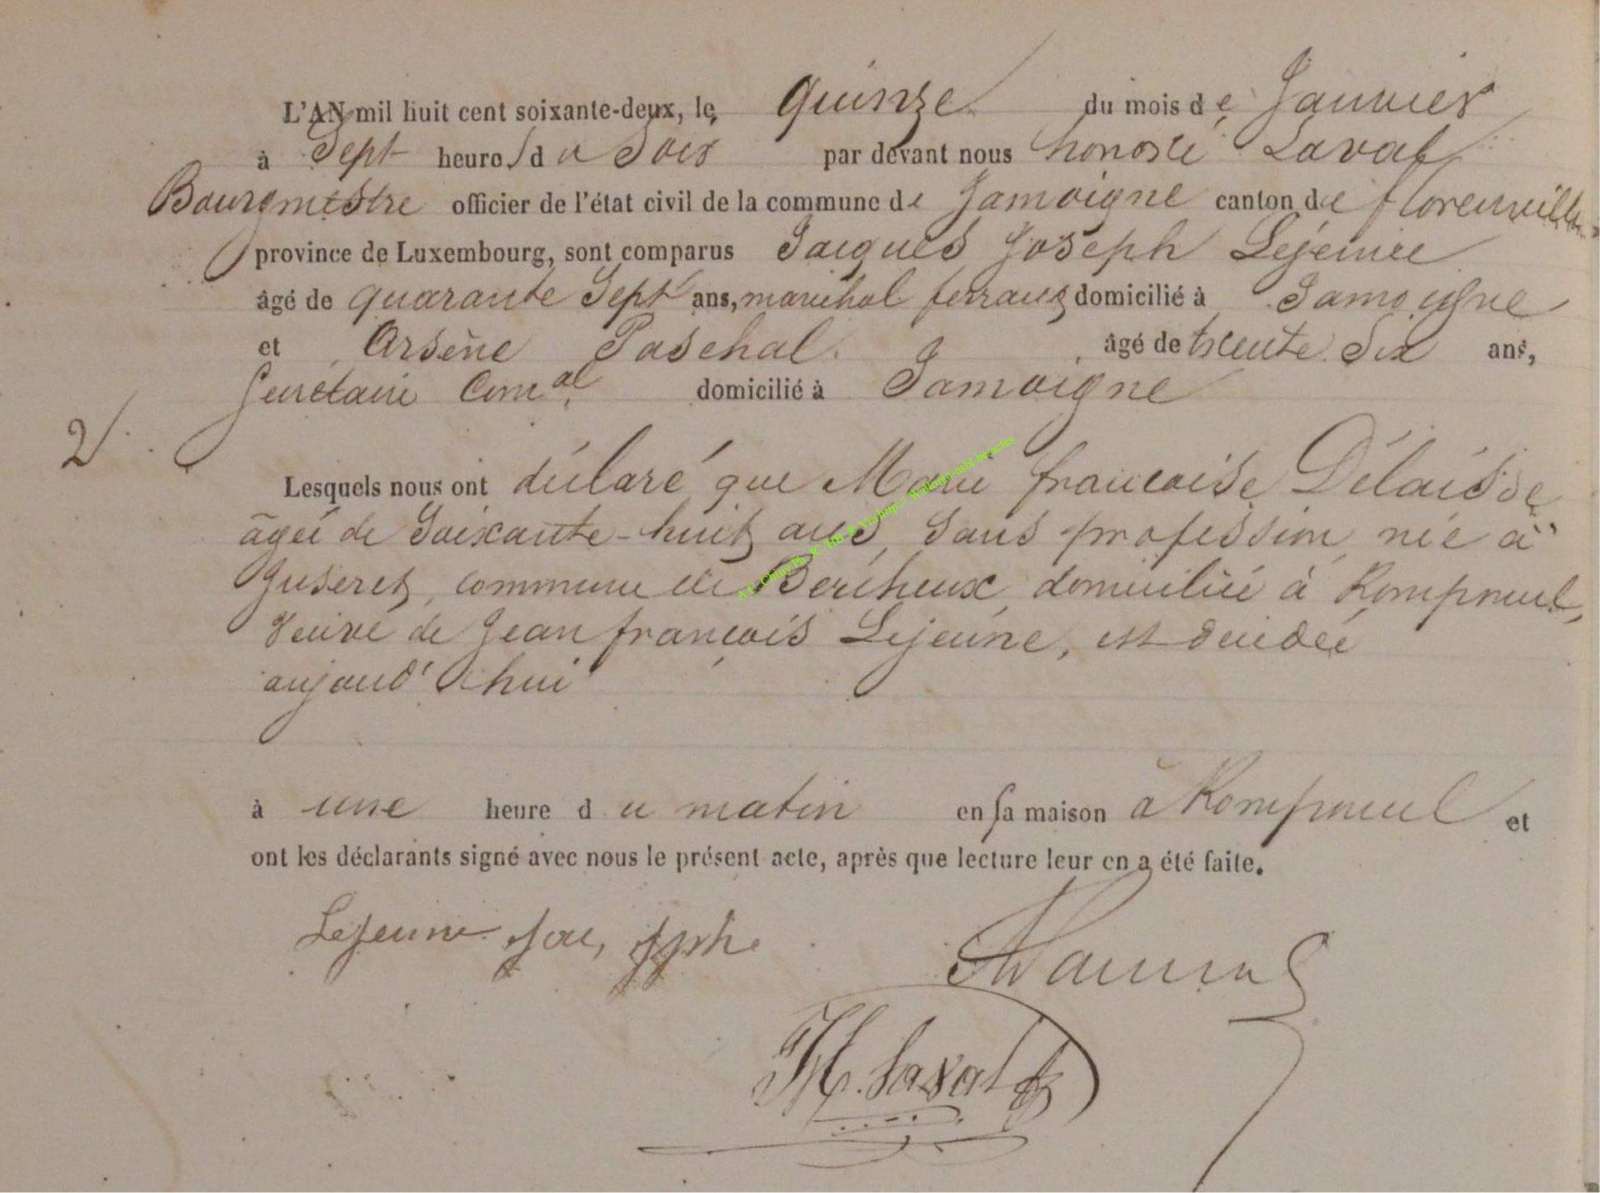 L'AN mil huit cent soixante-deux, le quinze du mois de Janvier
à Sept heures du Soir par devant nous honoré Laval
Bourgmestre officier de l'état civil de la commune de Jamoigne canton de florenville
province de Luxembourg, sont comparus Jacques Joseph Lejeune
âgé de quarante Sept ans, maréchal ferrant domicilié à Jamoigne
et Arsène Paschal âgé de trente Six ans,
Secrétaire Com.al domicilié à Jamoigne
2
Lesquels nous ont déclaré que Marie françoise Délaisse
âgée de Soixante-huit ans, Sans profession, née à
Juseret, commune de Bercheux, domiciliée à Rompneul,
Veuve de Jean françois Lejeune, est décédée
aujourd'hui
à une heure du matin en sa maison à Rompneul et
ont les déclarants signé avec nous le présent acte, après que lecture leur en a été faite.
Lejeune Jac, Jph
H. Laval